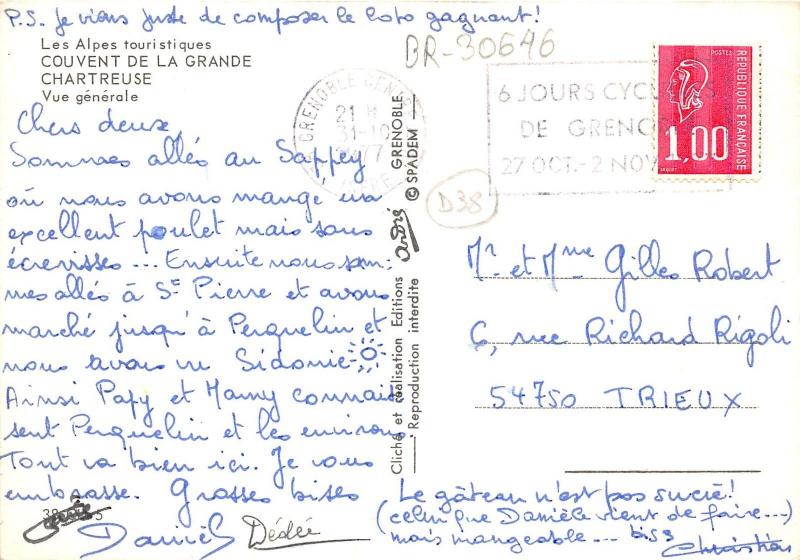 P.S. je viens juste de composer le loto gagnant!
Les Alpes touristiques
COUVENT DE LA GRANDE
CHARTREUSE
Vue générale
Chers deux,
Sommes allés au Sappey
où nous avons mangé un
excellent poulet mais sans
écrevisses... Ensuite nous som=
mes allés à St Pierre et avons
marché jusqu'à Perquelin et
nous avons vu Sidonie
Ainsi Papy et Mamy connais
sent Perquelin et les environs.
Tout va bien ici. Je vous
embrasse. Grosses bises
Danièle Dédée
Le gâteau n'est pas sucré!
(celui que Danièle vient de faire...)
mais mangeable... bises
Christian
BR-30646
D38
GRENOBLE
21 H
31-10
1977
ISERE
6 JOURS CYC
DE GRENO
27 OCT.-2 NOV
POSTES
REPUBLIQUE FRANÇAISE
1,00
Cliché et réalisation Editions andré GRENOBLE
Reproduction interdite © SPADEM
Mr et Mme Gilles Robert
6, rue Richard Rigoli
54750 TRIEUX